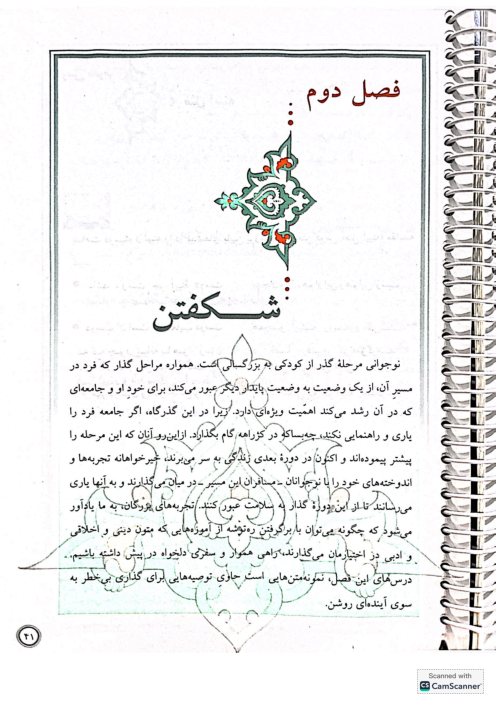 فصل دوم
شکفتن
نوجوانی مرحلهٔ گذر از کودکی به بزرگسالی است. همواره مراحل گذار که فرد در
مسیرِ آن، از یک وضعیت به وضعیت پایدار دیگر عبور می‌کند، برای خودِ او و جامعه‌ای
که در آن رشد می‌کند اهمّیت ویژه‌ای دارد. زیرا در این گذرگاه، اگر جامعه فرد را
یاری و راهنمایی نکند، چه‌بساکه در کژراهه گام بگذارد. ازاین‌رو آنان که این مرحله را
پیشتر پیموده‌اند و اکنون در دورهٔ بعدی زندگی به سر می‌برند، خیرخواهانه تجربه‌ها و
اندوخته‌های خود را با نوجوانان ـ مسافران این مسیر ـ در میان می‌گذارند و به آنها یاری
می‌رسانند تا از این دورهٔ گذار به سلامت عبور کنند. تجربه‌های بزرگان، به ما یادآور
می‌شود که چگونه می‌توان با برگرفتن ره‌توشه از آموزه‌هایی که متون دینی و اخلاقی
و ادبی در اختیارمان می‌گذارند، راهی هموار و سفری دلخواه در پیش داشته باشیم.
درس‌های این فصل، نمونه‌متن‌هایی است حاوی توصیه‌هایی برای گذاری بی‌خطر به
سوی آینده‌ای روشن.
۴۱
Scanned with
CS CamScanner